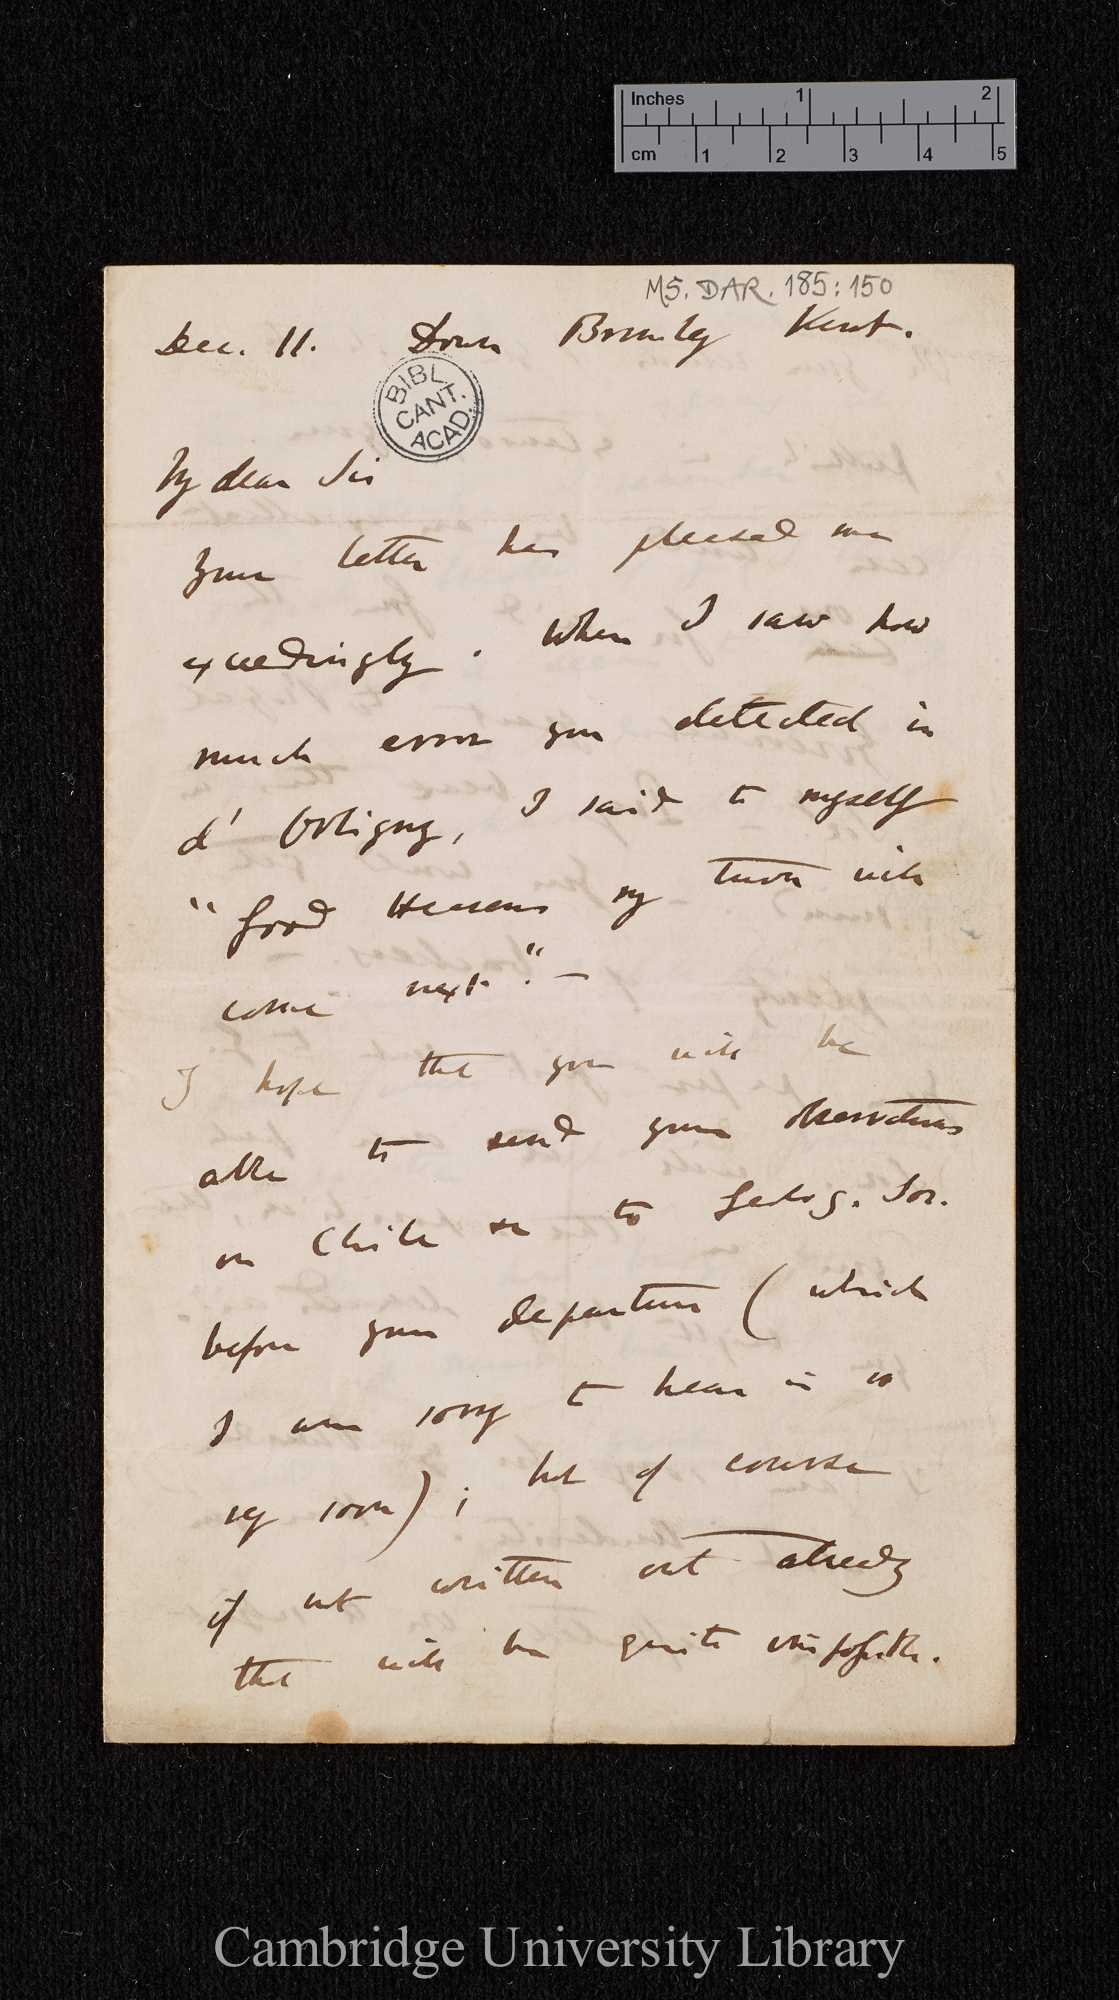 Inches 1 2
cm 1 2 3 4 5
MS. DAR. 185: 150
Dec. 11. Down Bromley Kent.
BIBL.
CANT.
ACAD.
My dear Sir
Your letter has pleased me
exceedingly. When I saw how
much error you detected in
d'Orbigny, I said to myself
"Good Heavens my turn will
come next". —
I hope that you will be
able to send your observations
on Chile &c to Geolog. Soc.
before your departure (which
I am sorry to hear is so
very soon); but of course
if not written out already
this will be quite impossible.
Cambridge University Library